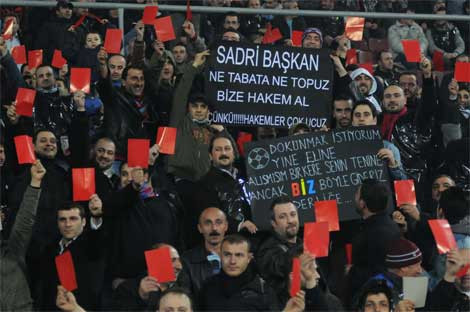 SADRİ BAŞKAN
NE TABATA NE TOPUZ
BİZE HAKEM AL
ÇÜNKÜ!!!!!HAKEMLER ÇOK UCUZ
DOKUNMAK İSTİYORUM
YİNE ELİNE
ALIŞMIŞIM BİRKERE SENİN TENİNE
ANCAK BİZ BÖYLE GİRERİZ
DERBİLERE